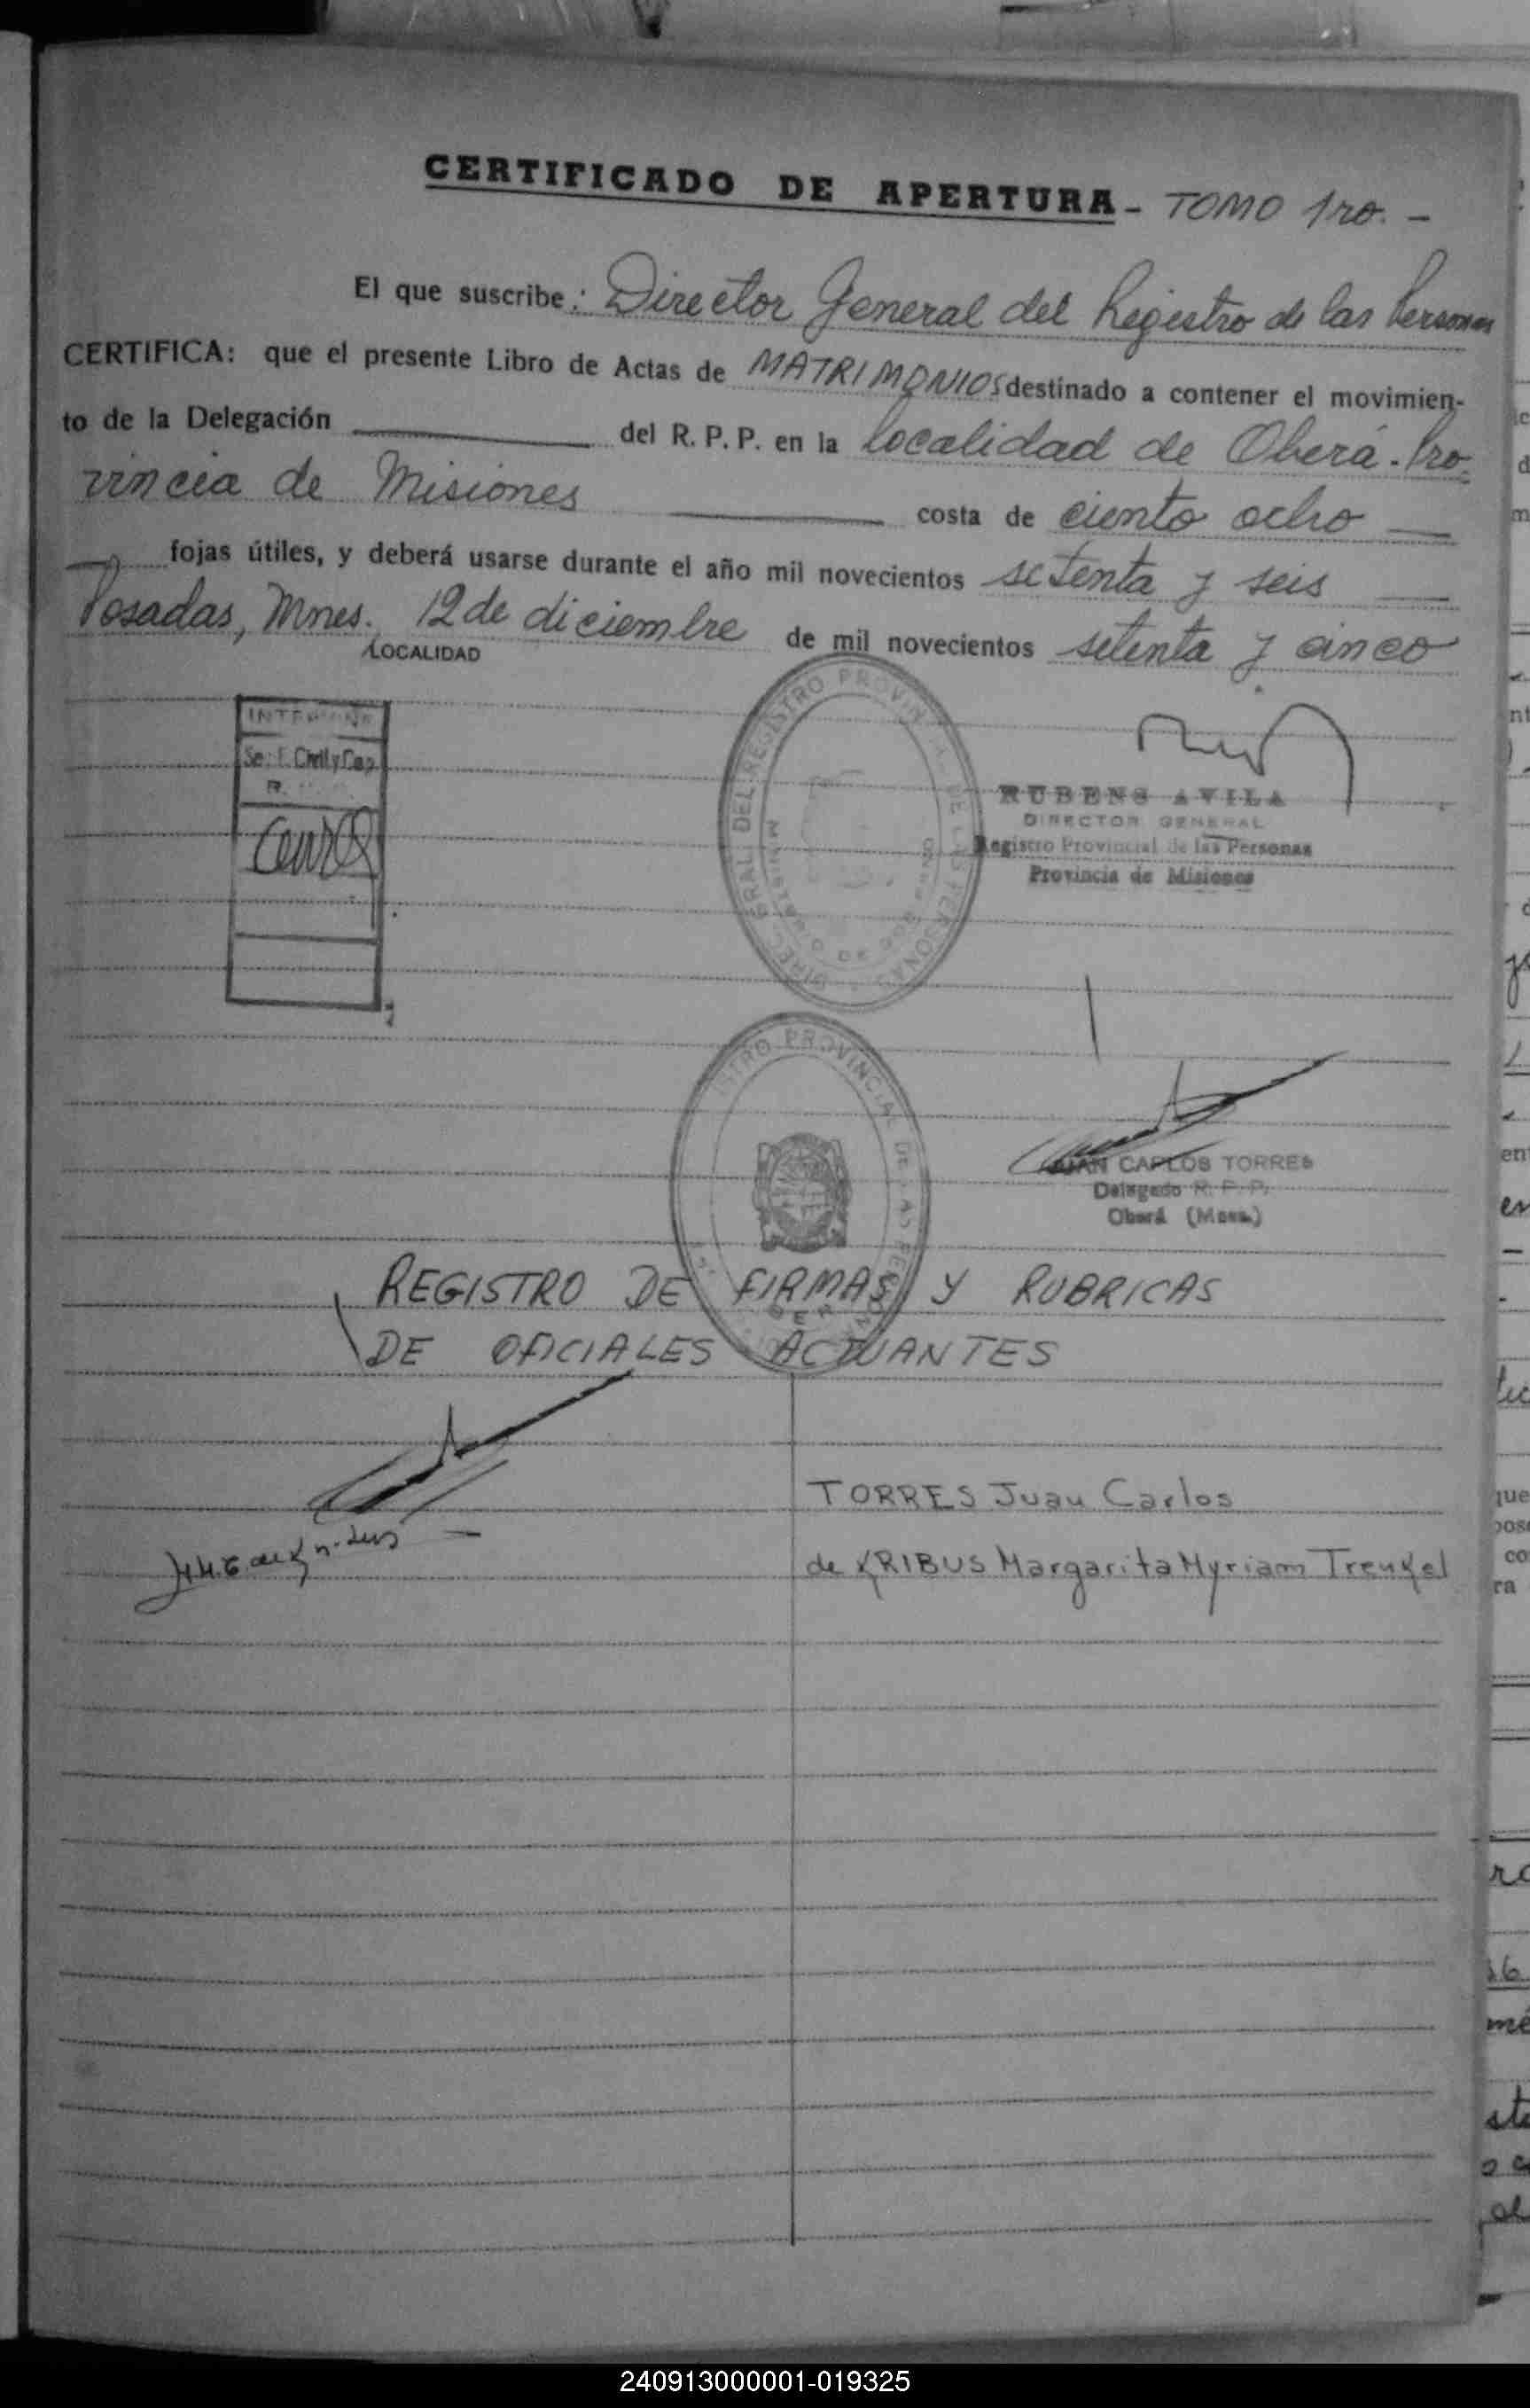 CERTIFICADO DE APERTURA - TOMO 1ro. -
El que suscribe: Director General del Registro de las Personas
CERTIFICA: que el presente Libro de Actas de MATRIMONIOS destinado a contener el movimien-
to de la Delegación del R. P. P. en la localidad de Oberá - Pro-
vincia de Misiones costa de ciento ocho
fojas útiles, y deberá usarse durante el año mil novecientos setenta y seis
Posadas, Mnes. 12 de diciembre de mil novecientos setenta y cinco
LOCALIDAD
Civil y Cap
RUBENS AVILA
DIRECTOR GENERAL
Registro Provincial de las Personas
Provincia de Misiones
JUAN CARLOS TORRES
Delegado R. P. P.
Oberá (Mnes.)
REGISTRO DE FIRMAS Y RUBRICAS
DE OFICIALES ACTUANTES
TORRES Juan Carlos
de KRIBUS Margarita Myriam Trenkel
240913000001-019325